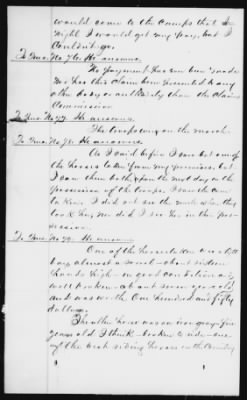 would come to the camps that
night I would get my pay, but I
Couldn't go.
To Ques. No 76. He answers.
No payment has ever been made
nor has this claim been presented to any
other body or authority than the Claims
Commission
To Ques. No 77. He answers.
The troops were on the march.
To Ques. No 78. He answers.
As I said before I saw but one of
the horses taken from my premises, but
I saw them both the next day in the
possession of the troops. I saw the one
taken. I did not see the mule when they
took it, nor did I see it in their
possession.
To Ques. No 79. He answers
One of the horses taken was a
bay almost a sorrel about sixteen
hands high in good condition
well broken about seven years old
and was worth One hundred and fifty
dollars.
The other horse was an iron gray five
years old I think broken to ride one
of the best riding horses in the Country